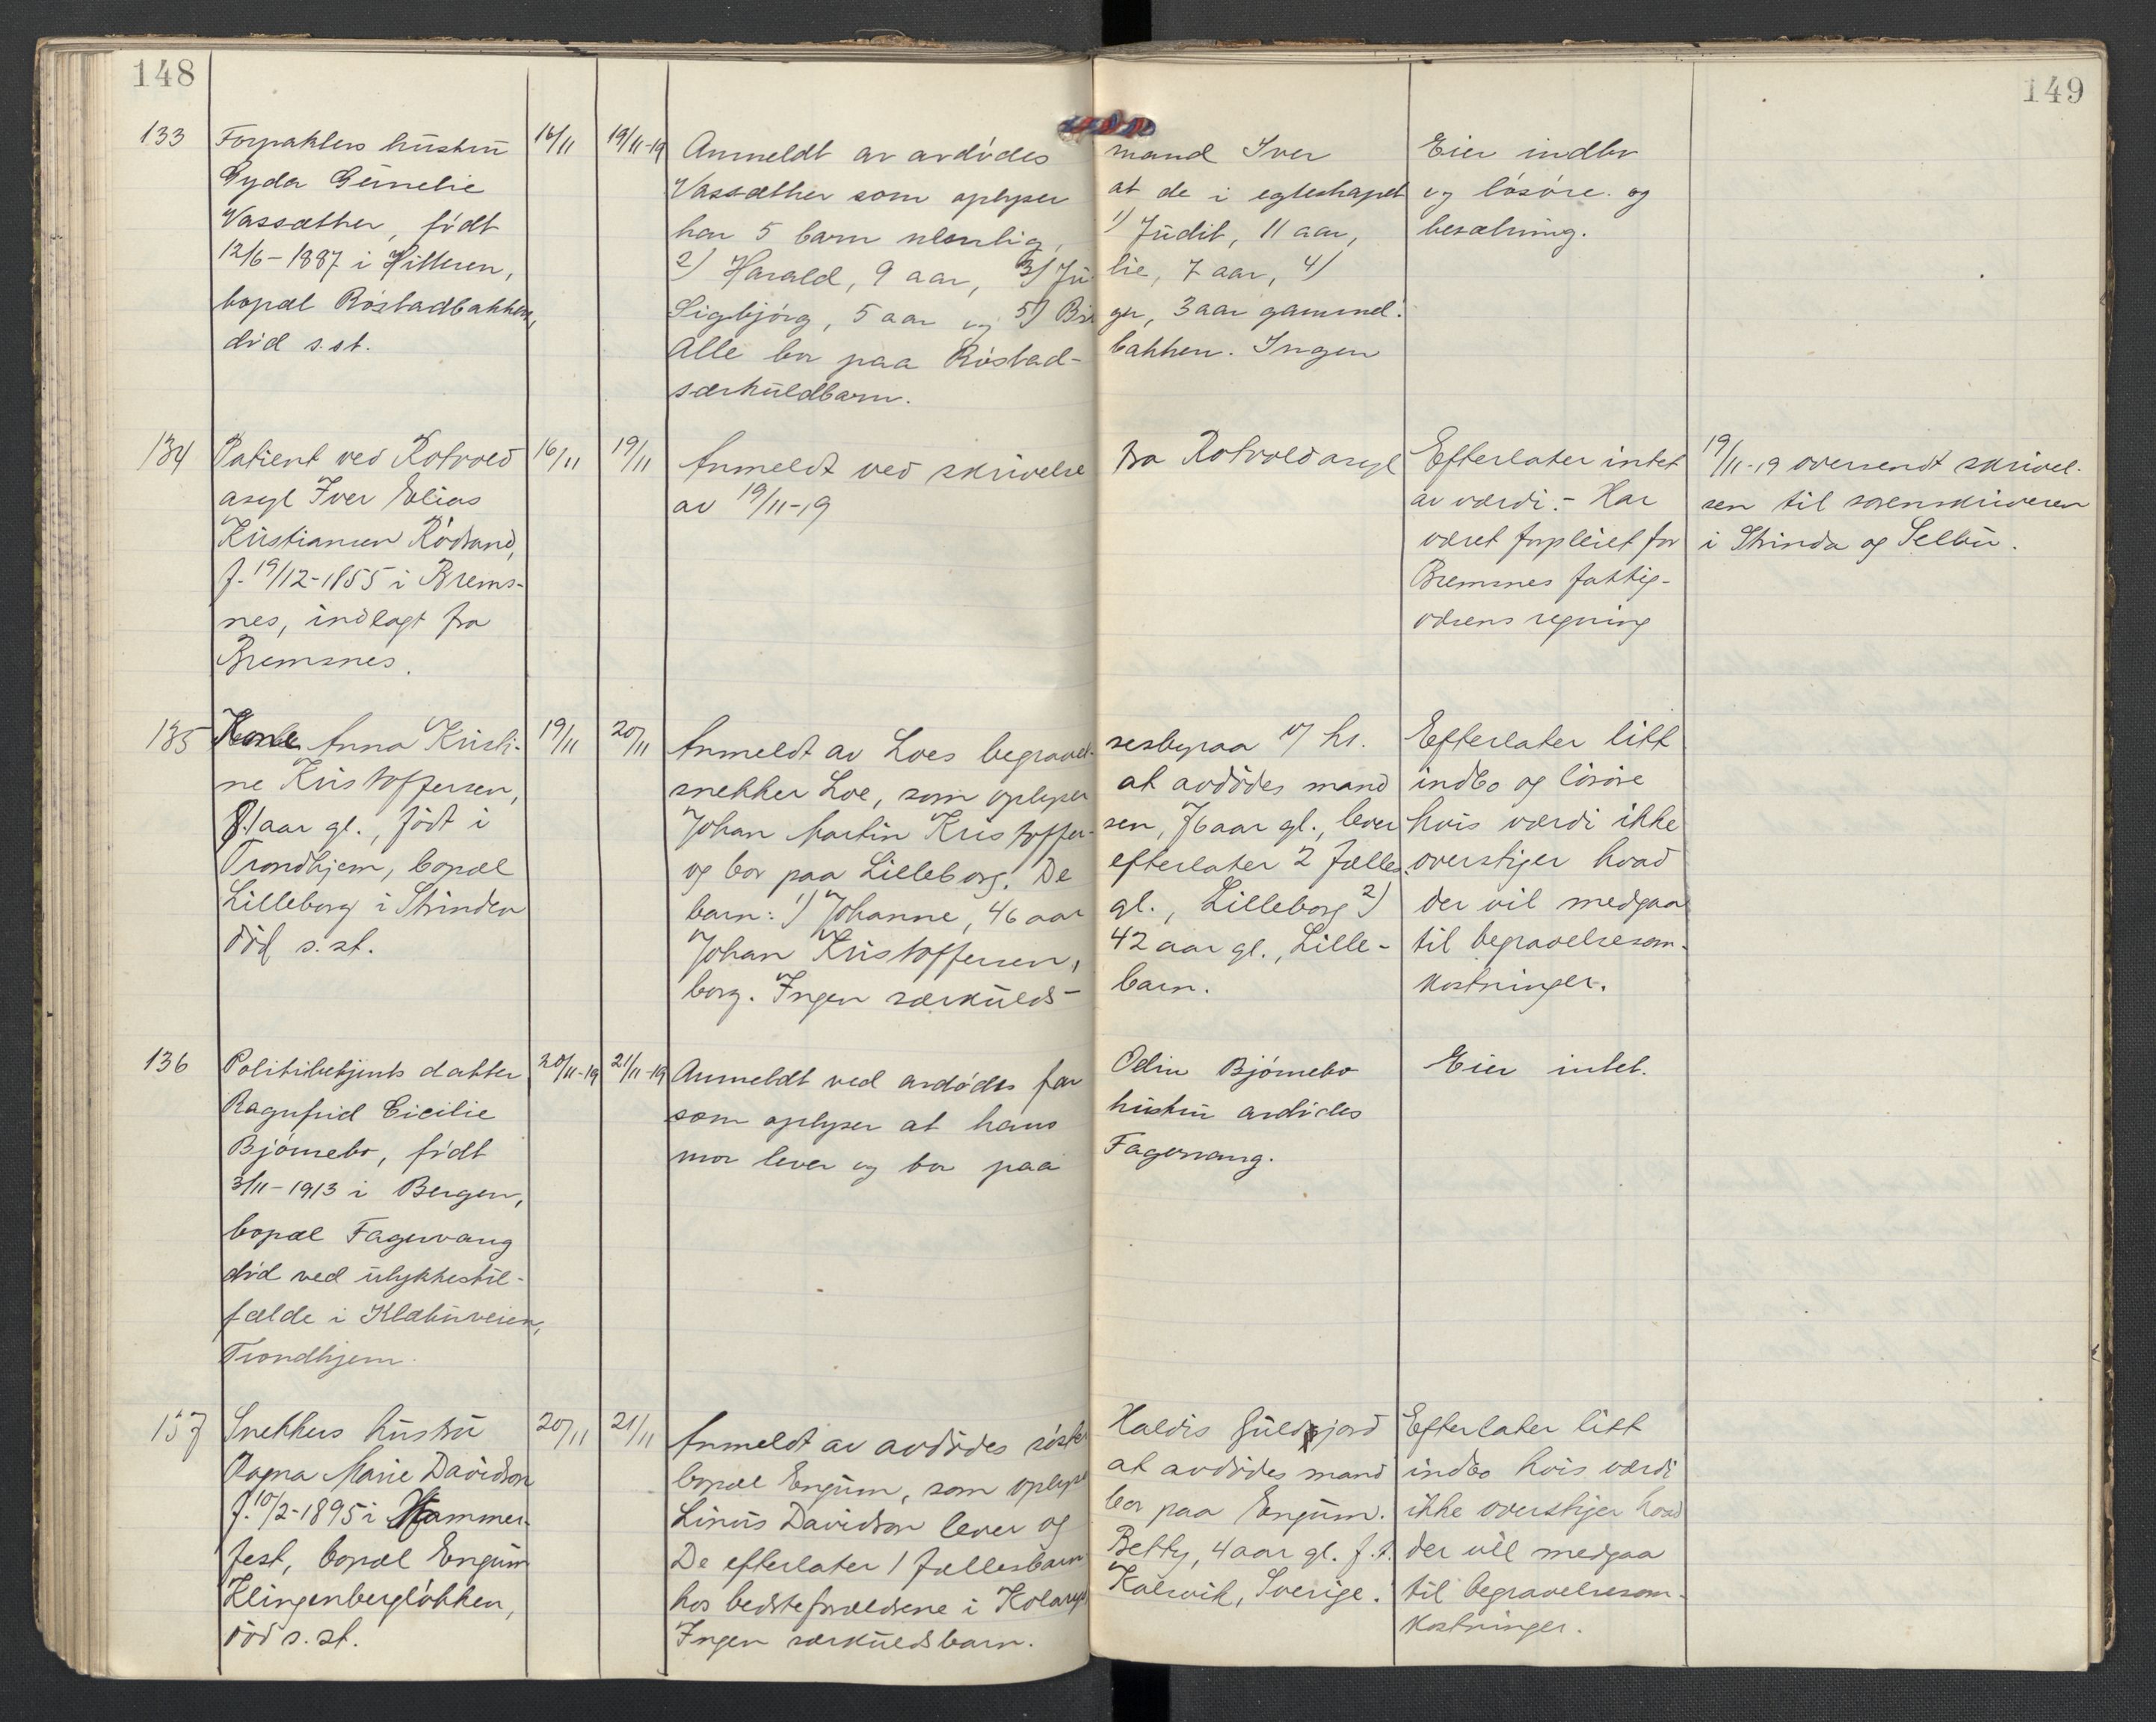 148
149
133
Forpakters hustru
Gyda Gunelie
Vassæther, født
12/6-1887 i Hitteren,
bopæl Røstadbakken,
død s.st.
16/11
19/11-19
Anmeldt av avdødes mand Iver
Vassæther som oplyser at de i egteskapet
har 5 barn nemlig, 1) Judit, 11 aar,
2) Harald, 9 aar, 3) Julie, 7 aar, 4)
Sigbjørg, 5 aar og 5) Birger, 3 aar gammel.
Alle bor paa Røstadbakken. Ingen
særkuldbarn.
Eier indbo
og løsøre. og
besætning.
134
Patient ved Rotvold
asyl Iver Elias
Kristiansen Rødsand,
f. 19/12-1855 i Brems-
nes, indlagt fra
Bremsnes.
16/11
19/11
Anmeldt ved skrivelse fra Rotvold asyl
av 19/11-19
Efterlater intet
av værdi. - Har
været forpleiet for
Bremsnes fattig-
væsens regning
19/11-19 oversendt skrivel-
sen til sorenskriveren
i Strinda og Selbu.
135
Kone Anna Kristi-
ne Kristoffersen,
81 aar gl., født i
Trondhjem, bopæl
Lilleborg i Strinden
død s.st.
19/11
20/11
Anmeldt av Loes begravelsesbyraa v/ hr.
snekker Loe, som oplyser at avdødes mand
Johan Martin Kristoffersen, 76 aar gl., lever
og bor paa Lilleborg. De efterlater 2 fælles
barn: 1) Johanne, 46 aar gl., Lilleborg 2)
Johan Kristoffersen, 42 aar gl., Lille-
borg. Ingen særkulds- barn.
Efterlater litt
indbo og løsøre
hvis værdi ikke
overstiger hvad
der vil medgaa
til begravelsesom-
kostninger.
136
Politibetjents datter
Ragnfrid Cicilie
Bjørnebo, født
3/11-1913 i Bergen,
bopæl Fagervang
død ved ulykkestil-
fælde i Klæbuveien,
Trondhjem.
20/11-19
21/11-19
Anmeldt ved avdødes far Odin Bjørnebo
som oplyser at hans hustru avdødes
mor lever og bor paa Fagervang.
Eier intet.
137
Snekkers hustru
Dagna Marie Davidson
f. 10/2-1895 i Hammer-
fest, bopæl Engum
Klingenbergløkken,
død s.st.
20/11
21/11
Anmeldt av avdødes søster Haldis Guldgjord
bopæl Engum, som oplyser at avdødes mand
Linus Davidson lever og bor paa Engum.
De efterlater 1 fællesbarn Betty, 4 aar gl. f.t.
hos bedsteforældrene i Kolarvik, Sverige.
Ingen særkuldsbarn.
Efterlater litt
indbo hvis værdi
ikke overstiger hvad
der vil medgaa
til begravelsesom-
kostninger.